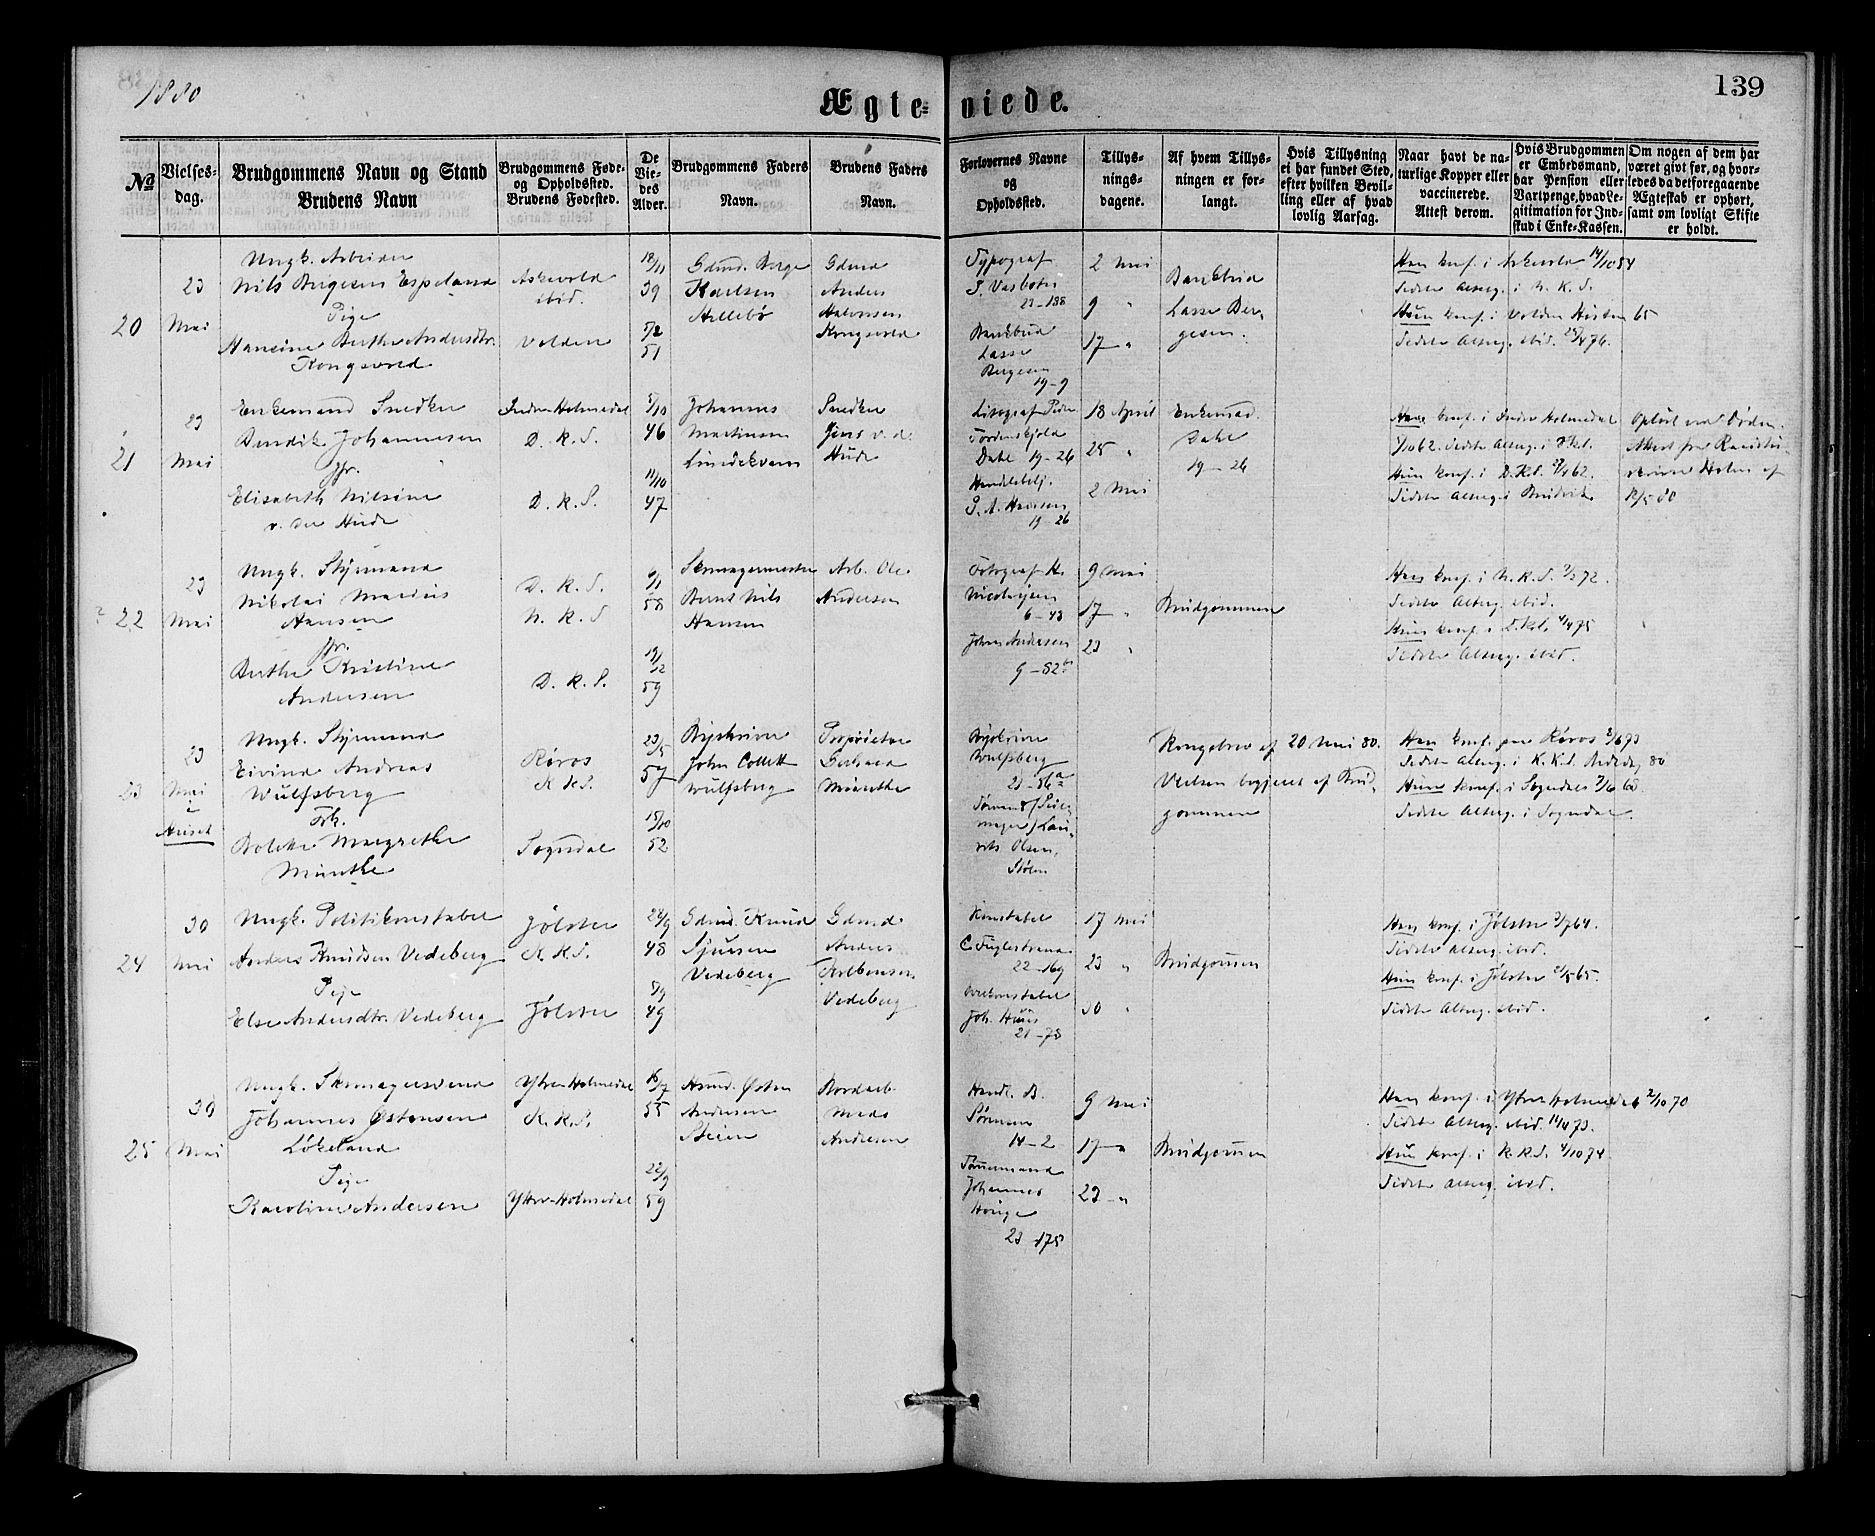 1880
139
Ægte- viede.
No
Vielses-
dag.
Brudgommens Navn og Stand
Brudens Navn
Brudgommens Føde-
og Opholdssted.
Brudens Fødested.
De
Vie-
des
Alder.
Brudgommens Faders
Navn.
Brudens Faders
Navn.
Forlovernes Navne
og
Opholdssted.
Tillys-
nings-
dagene.
Af hvem Tillys-
ningen er for-
langt.
Hvis Tillysning
ei har fundet Sted,
efter hvilken Bevil-
ling eller af hvad
lovlig Aarsag.
Naar havt de na-
turlige Kopper eller
vaccinerede.
Attest derom.
Hvis Brudgommen
er Embedsmand,
har Pension eller
Vartpenge, hvad Le-
gitimation for Ind-
skud i Enke-Kassen.
Om nogen af dem har
været givt før, og hvor-
ledes da det foregaaende
Ægteskab er ophørt,
samt om lovligt Skifte
er holdt.
20
23
Mai
Ungk. Arbeider
Nils Bergesen Espeland
Pige
Hansine Berthe Andersdtr.
Kongsvold
Askevold
ibid.
Volden
18/11
39
5/2
51
Gdmd. Berge
Karlsen
Hellebø
Gdmd
Anders
Halvorsen
Kongsvold
Typograf
23-188
Bankbud
Lasse
Bergesen
19-9
2 Mai
9 "
17 "
Bankbud
Lasse Ber-
gesen.
Han konf. i Askevold 14/10 54
Sidste Alterg. i N. K. S.
Hun konf. i Volden Høsten 65
Sidste Alterg. ibid. 25/4 76.
21
23
Mai
Enkemand Snedker
Bendik Johannessen
Jfr.
Elisabeth Nilsine
v. der Hude
Indre Holmedal
D. K. S.
D. K. S.
5/10
46
11/10
47
Johannes
Martinsen
Lundekvam
Snedker
Jens v. d.
Hude
Litograf Peder
Tordenskjold
Dahl 19-26
Handelsbetj.
S. A. Hansen
19-26
18 April
25 "
2 Mai
Enkemd.
Dahl
19-26
Han konf. i Indre Holmedal
1/10 62. Sidste Alterg. i D.K.S.
Hun konf. i D.K.S. 27/4 62.
Sidste Alterg. i
Opløst ved Døden.
Attest fra
Holm af
12/5 80
22
23
Mai
Ungk. Styrmand
Nikolai Marius
Hansen
Jfr.
Berthe Kristine
Andersen
D. K. S.
N. K. S
D. K. S.
6/1
58
19/12
59
Skomagermester
Bernt Nils
Hansen
Arb. Ole
Andersen
Fotograf K.
Nicolaysen
6-43
Johan Andersen
9-52b
9 Mai
17 "
23 "
Brudgommen
Han konf. i N. K. S. 72.
Sidste Alterg. ibid.
Hun konf. i D.K.S. 4/4 75
Sidste Alterg. ibid.
23
23
Mai
i
Huset
Ungk. Styrmand
Eivind Andreas
Wulfsberg
Frk.
Bolette Margrethe
Münthe
Røros
K K S.
Sogndal
23/5
57
15/10
52
Byskriver
John Collett
Wulfsberg
Proprietær
Gerhard
Münthe
Byskriver
Wulfsberg
21-56a
Tømrer / Seil-
mager / Lau-
rits Olsen,
Stølen
Kongebrev af 20 Mai 80.
Vielsen begjæret af Brud-
gommen
Han konf. paa Røros 2/6 73
Sidste Alterg. i K.K.S. 80
Hun konf. i Sogndal 7/6 68
Sidste Alterg. i Sogndal.
24
30
Mai
Ungk. Politikonstabel
Anders Knudsen Vedeberg
Pige
Else Andersdtr. Vedeberg
Jølster
K. K. S.
Jølster
24/9
48
5/9
49
Gdmd. Knud
Sjursen
Vedeberg
Gdmd.
Anders
Vedeberg
Konstabel
C. Fuglestrand
22-169
Joh. Huus
21-78
17 Mai
23 "
30 "
Brudgommen
Han konf. i Jølster 3/7 64.
Sidste Alterg. ibid.
Hun konf. i Jølster 2/5 65.
Sidste Alterg. ibid.
25
30
Mai
Ungk. Skomagersvend
Johannes Østensen
Løkeland
Pige
Karoline Andersen
Ytre Holmedal
K. K. S.
Ytre Holmedal
16/7
55
22/9
59
Hsmd. Østen
Andersen
Steien
Mads
Andersen
Handl. B.
Sørensen
14-2
Johannes
Hauge
23-175
9 Mai
17 "
23 "
Brudgommen
Han konf. i Ytre Holmedal 2/10 70
Sidste Alterg. ibid. 11/4 73.
Hun konf. i K.K.S. 4/10 74.
Sidste Alterg. ibid.